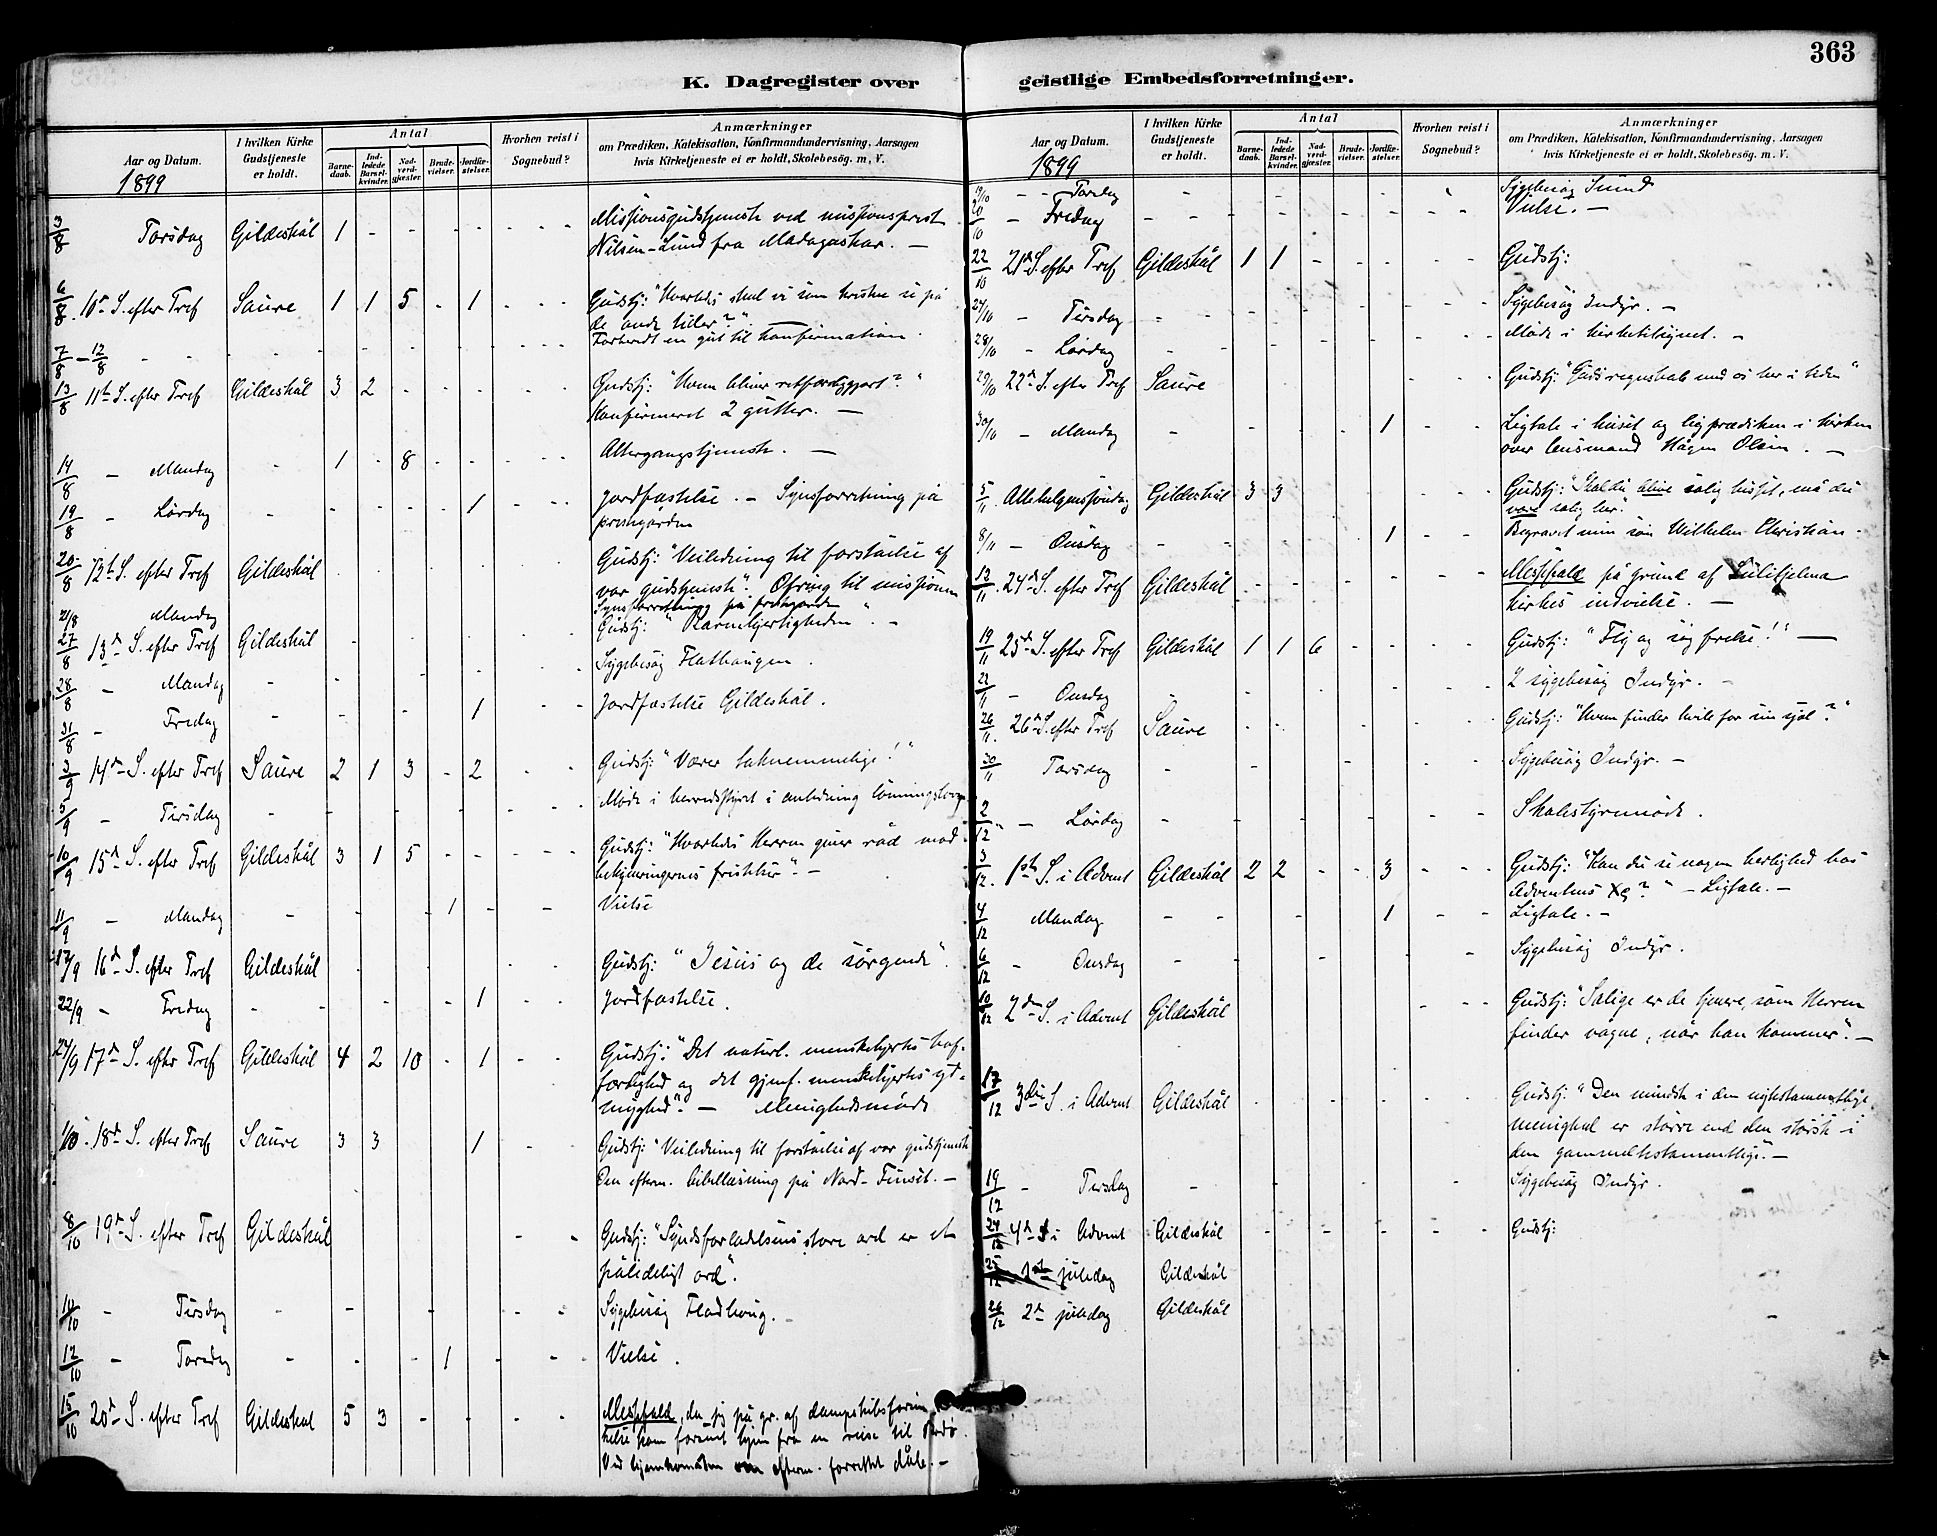 363
K. Dagregister over geistlige Embedsforretninger.
Aar og Datum.
1899
I hvilken Kirke Gudstjeneste er holdt.
Antal
Barnedaab.
Indledede Barselkvinder.
Nadverdgjæster.
Brudevielser.
Jordfæstelser.
Hvorhen reist i Sognebud?
Anmærkninger
om Prædiken, Katekisation, Konfirmandundervisning, Aarsagen
hvis Kirketjeneste ei er holdt, Skolebesøg. m. V.
3/8 Torsdag Gildeskål 1 - - - - - - Missionsgudstjeneste ved missionsprest
Nilsen-Lund fra Madagaskar. —
6/8. 10de S. efter Tref Saure 1 1 5 - 1 - - Gudstj: "Hvorledes skal vi som kristne se på
de onde tider?" —
7/8 - 12/8 - - - Forberedt en gut til konfirmation.
13/8 11te S. efter Tref Gildeskål 3 2 - - - - - Gudstj: "Hvem bliver retfærdiggjort?"
Konfirmeret 2 gutter. —
14/8 - Mandag - 1 - 8 - - - - Altergangstjeneste. —
19/8 - Lørdag - - - - - 1 - - Jordfæstelse. - Synsforretning på
prestegården
20/8 12te S. efter Tref Gildeskål - - - - Gudstj: "Veiledning til forståelse af
vor gudstjeneste". Ofring til missionen
21/8 Mandag Synsforretning på prestegården
27/8 13de S. efter Tref Gildeskål - - - Gudstj: "Barmhjertigheden". —
28/8 - Mandag - - - - Sygebesøg Flathaugen.
31/8 - Fredag - - - 1 - - Jordfæstelse Gildeskål.
3/9 14de S. efter Tref Saure 2 1 3 - 2 - - Gudstj: "Værer taknemmelige!"
5/9 - Tirsdag - - - - - Møde i herredsstyret i anledning lønningslove
10/9 15de S. efter Tref Gildeskål 3 1 5 - - - - Gudstj: "Hvorledes Herren giver råd mod
bekymringernes fristelser". —
11/9 - Mandag - - - - 1 - - Vielse
17/9 16de S. efter Tref Gildeskål - - - Gudstj: "Jesus og de sørgende".
22/9 - Fredag - - - 1 - - Jordfæstelse.
24/9 17de S. efter Tref Gildeskål 4 2 10 - 1 - - Gudstj: "Det naturl. menskehjertes hof-
færdighed og det gjenf. menskehjertes yd-
myghed". — Menighedsmøde
1/10. 18de S. efter Tref Saure 3 3 1 - - Gudstj: "Veiledning til forståelse af vor gudstjeneste
Den efterm. bibellæsning på Nord-Finset. —
8/10 19de S. efter Tref Gildeskål - - Gudstj: "Syndsforladelsens store ord er et
pålideligt ord".
10/10 - Tirsdag - - - - - Sygebesøg Fladhoug.
12/10 - Torsdag - - - 1 - - - Vielse.
15/10 20de S. efter Tref Gildeskål 5 3 - - - - Messefald, da jeg på gr. af dampskibsforsin
kelse kom forsent hjem fra en reise til Bodø.
Ved hjemkomsten om efterm. forrettet dåb. —
Aar og Datum.
1899
I hvilken Kirke Gudstjeneste er holdt.
Antal
Barnedaab.
Indledede Barselkvinder.
Nadverdgjæster.
Brudevielser.
Jordfæstelser.
Hvorhen reist i Sognebud?
Anmærkninger
om Prædiken, Katekisation, Konfirmandundervisning, Aarsagen
hvis Kirketjeneste ei er holdt, Skolebesøg. m. V.
19/10 - - Torsdag - - - Sygebesøg Sund
20/10 - Fredag - - - Vielse. —
22/10 21de S. efter Tref Gildeskål 1 1 - - - - - Gudstj:
24/10 - Tirsdag - - - - Sygebesøg Indyr. —
28/10 - Lørdag - - - - Møde i kirketilsynet. —
29/10 22de S. efter Tref Saure - - Gudstj: "Guds regnskab med os her i tiden"
30/10 - Mandag - - - - 1 - - Ligtale i huset og ligprædiken i kirken
over lensmand Hågen Olsen. —
5/11. Allehelgenssøndag Gildeskål 3 3 - - - Gudstj: "Skal du blive salig hisset, må du
være salig her.
8/11 - Onsdag - - 1 - - Begravet min søn Wilhelm Christian. -
12/11. 24de S. efter Tref Gildeskål - - - - Messefald på grund af Sulitjelma
kirkes indvielse. —
19/11 25de S. efter Tref Gildeskål 1 1 6 - - - - Gudstj: "Fly og søg frelse!" —
22/11 - Onsdag - - - 2 sygebesøg Indyr. —
26/11. 26de S. efter Tref Saure - - - Gudstj: "Hvem finder hvile for sin sjæl?"
30/11 Torsdag - - - - Sygebesøg Indyr. —
2/12 - Lørdag - - - - Skolestyremøde.
3/12. 1ste S. i Advent Gildeskål 2 2 - - 3 - - Gudstj: "Kan du se nogen herlighed hos
Adventens Xs?" - Ligtale. —
4/12 Mandag - - - 1 - - Ligtale. —
6/12 - Onsdag - - - - Sygebesøg Indyr.
10/12 2den S. i Advent Gildeskål - - - Gudstj: "Salige er de tjenere, som Herren
finder vågne, når han kommer". —
17/12 3die S. i Advent Gildeskål - - - - Gudstj: "Den mindste i den nytestamentlige
menighed er større end den største i
den gammeltestamentlige". —
19/12 - Tirsdag - - - - Sygebesøg Indyr.
24/12 4de S i Advent Gildeskål - - - - Gudstj:
25/12 1ste juledag Gildeskål
26/12 2de juledag Gildeskål